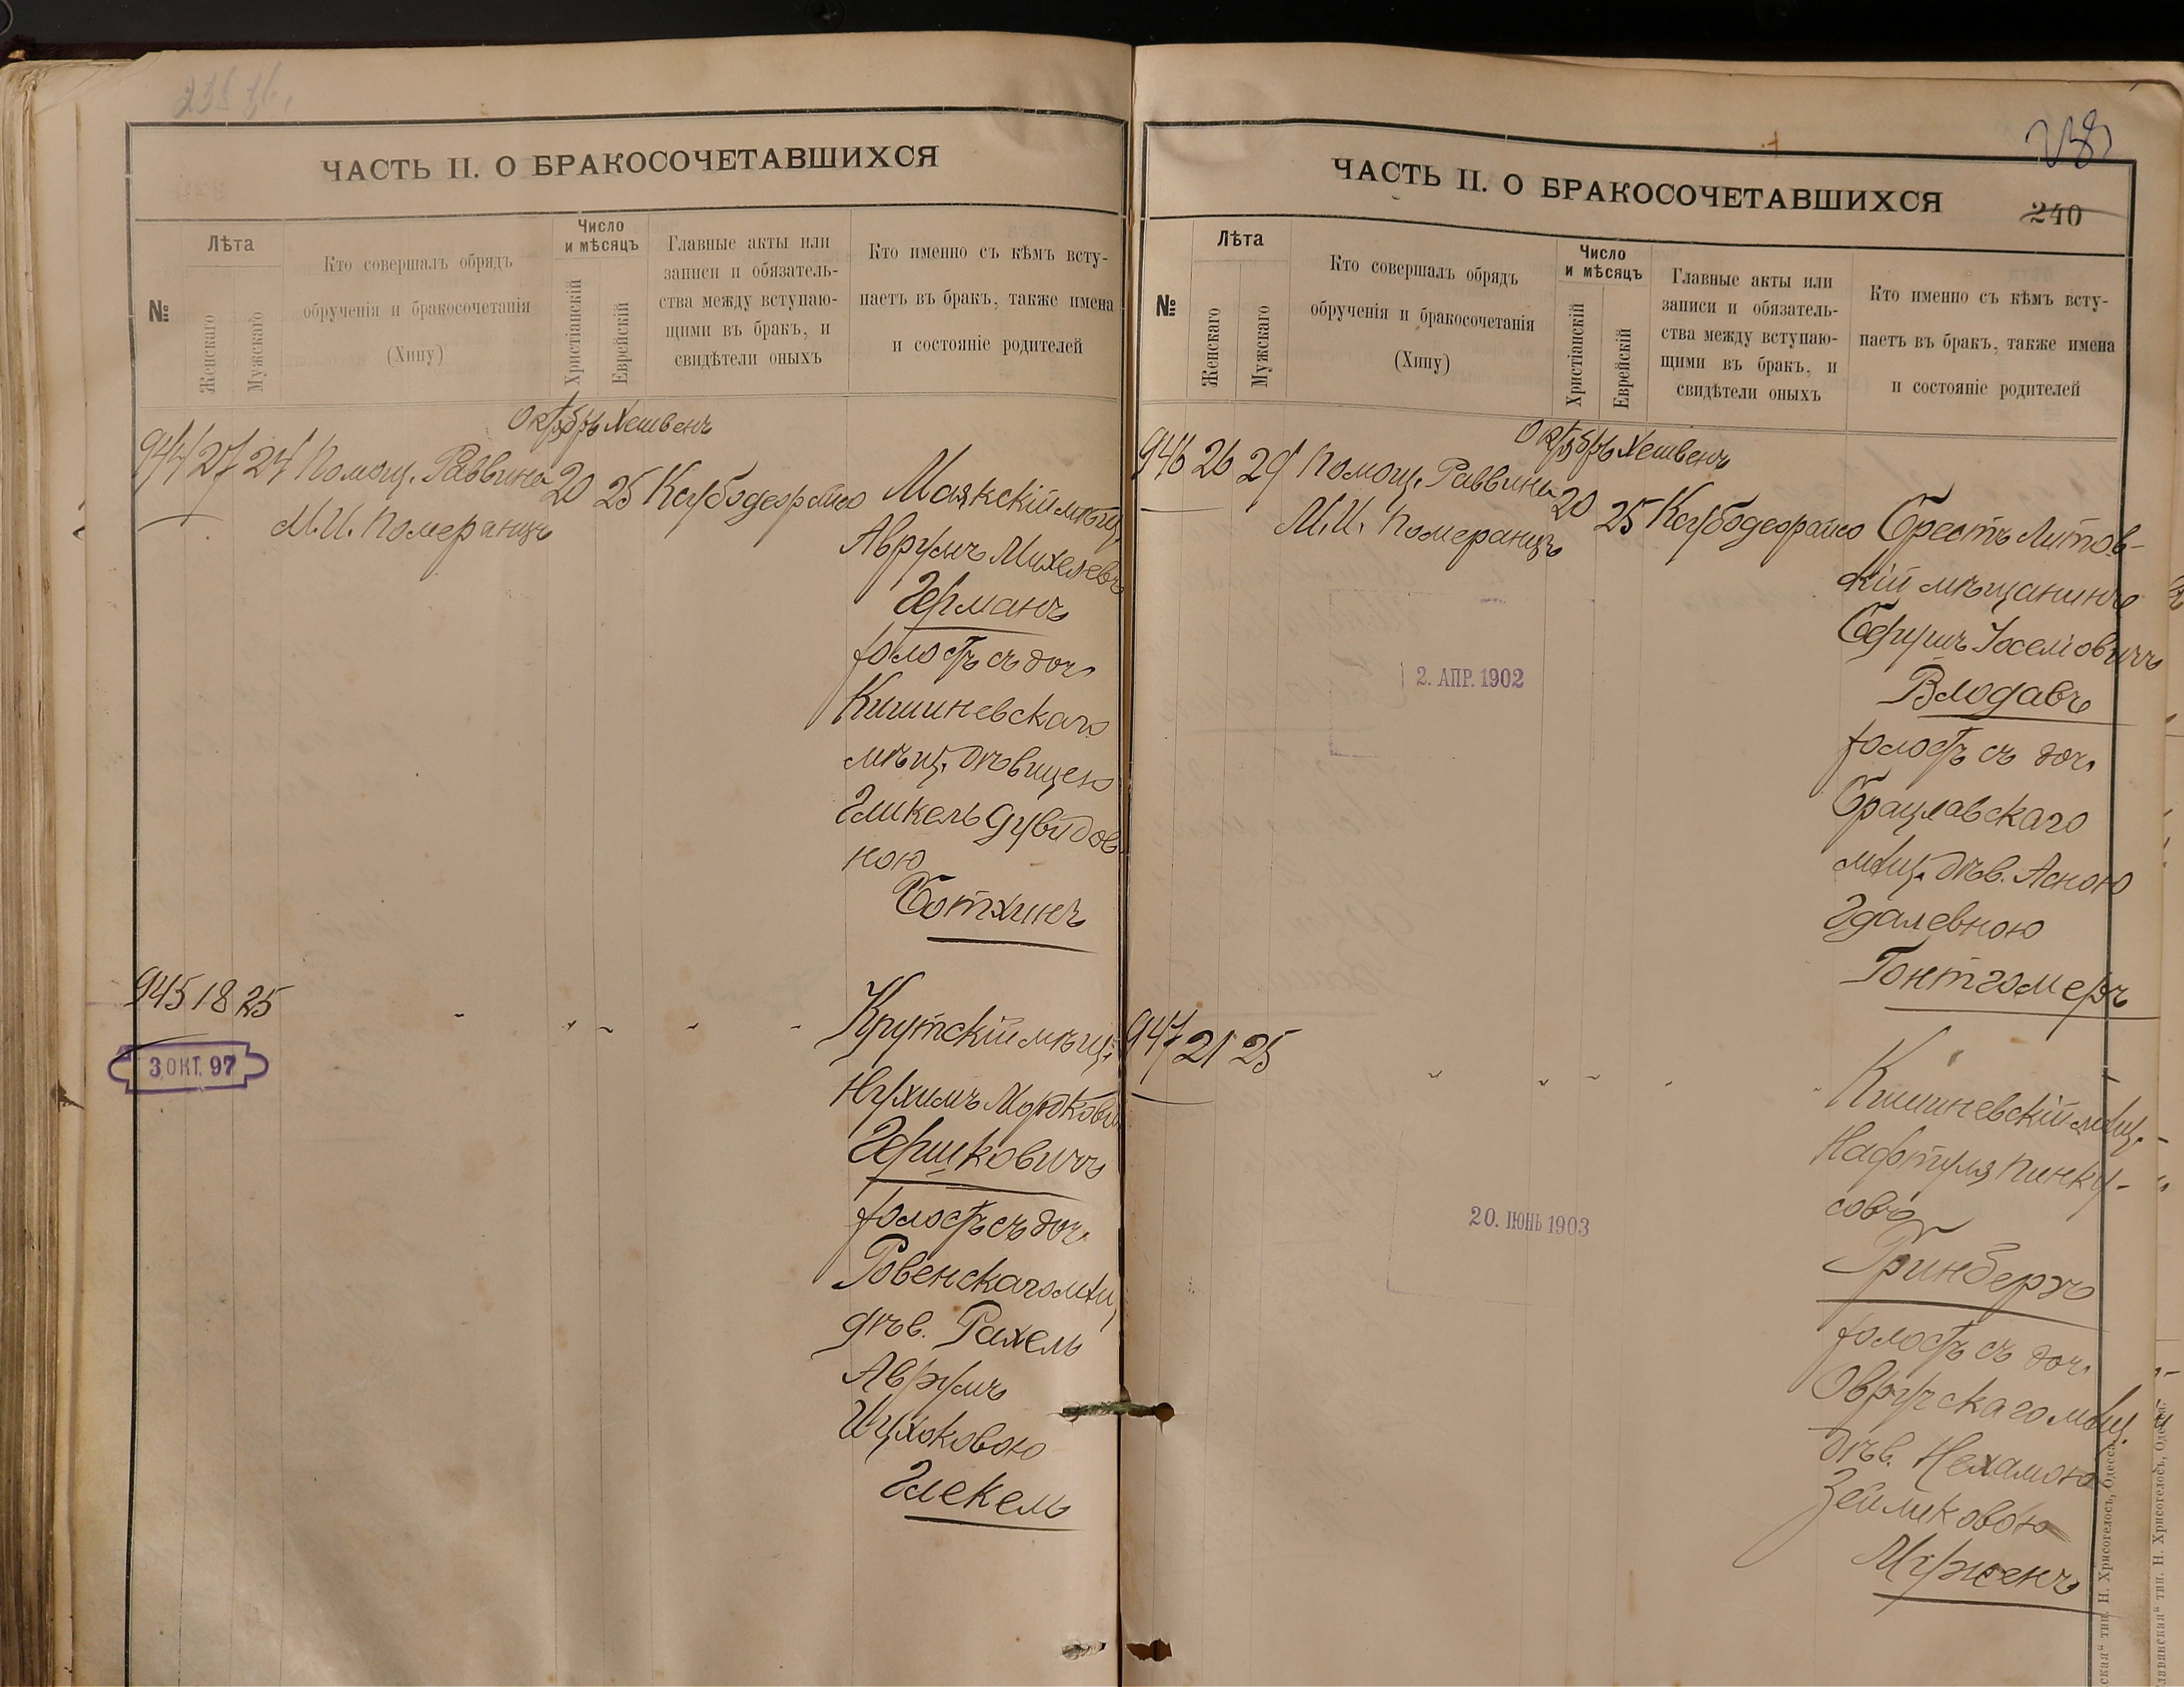 ЧАСТЬ II. О БРАКОСОЧЕТАВШИХСЯ
№
Лѣта
Женскаго
Мужскаго
Кто совершалъ обрядъ
обрученія и бракосочетанія
(Хипу)
Число
и мѣсяцъ
Христіанскій
Еврейскій
Главные акты или
записи и обязатель-
ства между вступаю-
щими въ бракъ, и
свидѣтели оныхъ
Кто именно съ кѣмъ всту-
паетъ въ бракъ, также имена
и состояніе родителей
Октябрь Хешвенъ
944 27 24 Помощ. Раввина 20 25
М.И. Померанцъ
Маякскій мѣщ.
Аврумъ Михелевъ
Германъ
холостъ съ доч.
Кишиневскаго
мѣщ. дѣвицею
Гликель Дувидов
ною
Ботхинъ
945 18 25
3 ОКТ. 97
Крутскій мѣщ.
Нухимъ Мордков
Гершковичъ
холостъ съ доч.
Ровенскаго мѣщ
дѣв. Рахель
Аврумъ
Ицхоковою
Глекель
ЧАСТЬ II. О БРАКОСОЧЕТАВШИХСЯ
238
240
№
Лѣта
Женскаго
Мужскаго
Кто совершалъ обрядъ
обрученія и бракосочетанія
(Хипу)
Число
и мѣсяцъ
Христіанскій
Еврейскій
Главные акты или
записи и обязатель-
ства между вступаю-
щими въ бракъ, и
свидѣтели оныхъ
Кто именно съ кѣмъ всту-
паетъ въ бракъ, также имена
и состояніе родителей
Октябрь Хешвенъ
946 26 29 Помощ. Раввина 20 25
М.И. Померанцъ
Брестъ Литов-
скій мѣщанинъ
Влодавъ
холостъ съ доч.
Брацлавскаго
мѣщ. дѣв. Асною
Гдалевною
Гонтгомеръ
2. АПР. 1902
947 21 25
Кишиневскій мѣщ.
Нафтула Пинку-
совъ
Гринбергъ
холостъ съ доч.
Овручскаго мѣщ.
дѣв. Нехамою
Зейликовою
20. ІЮНЬ 1903
тип. Н. Хрисогелосъ, Одесса.